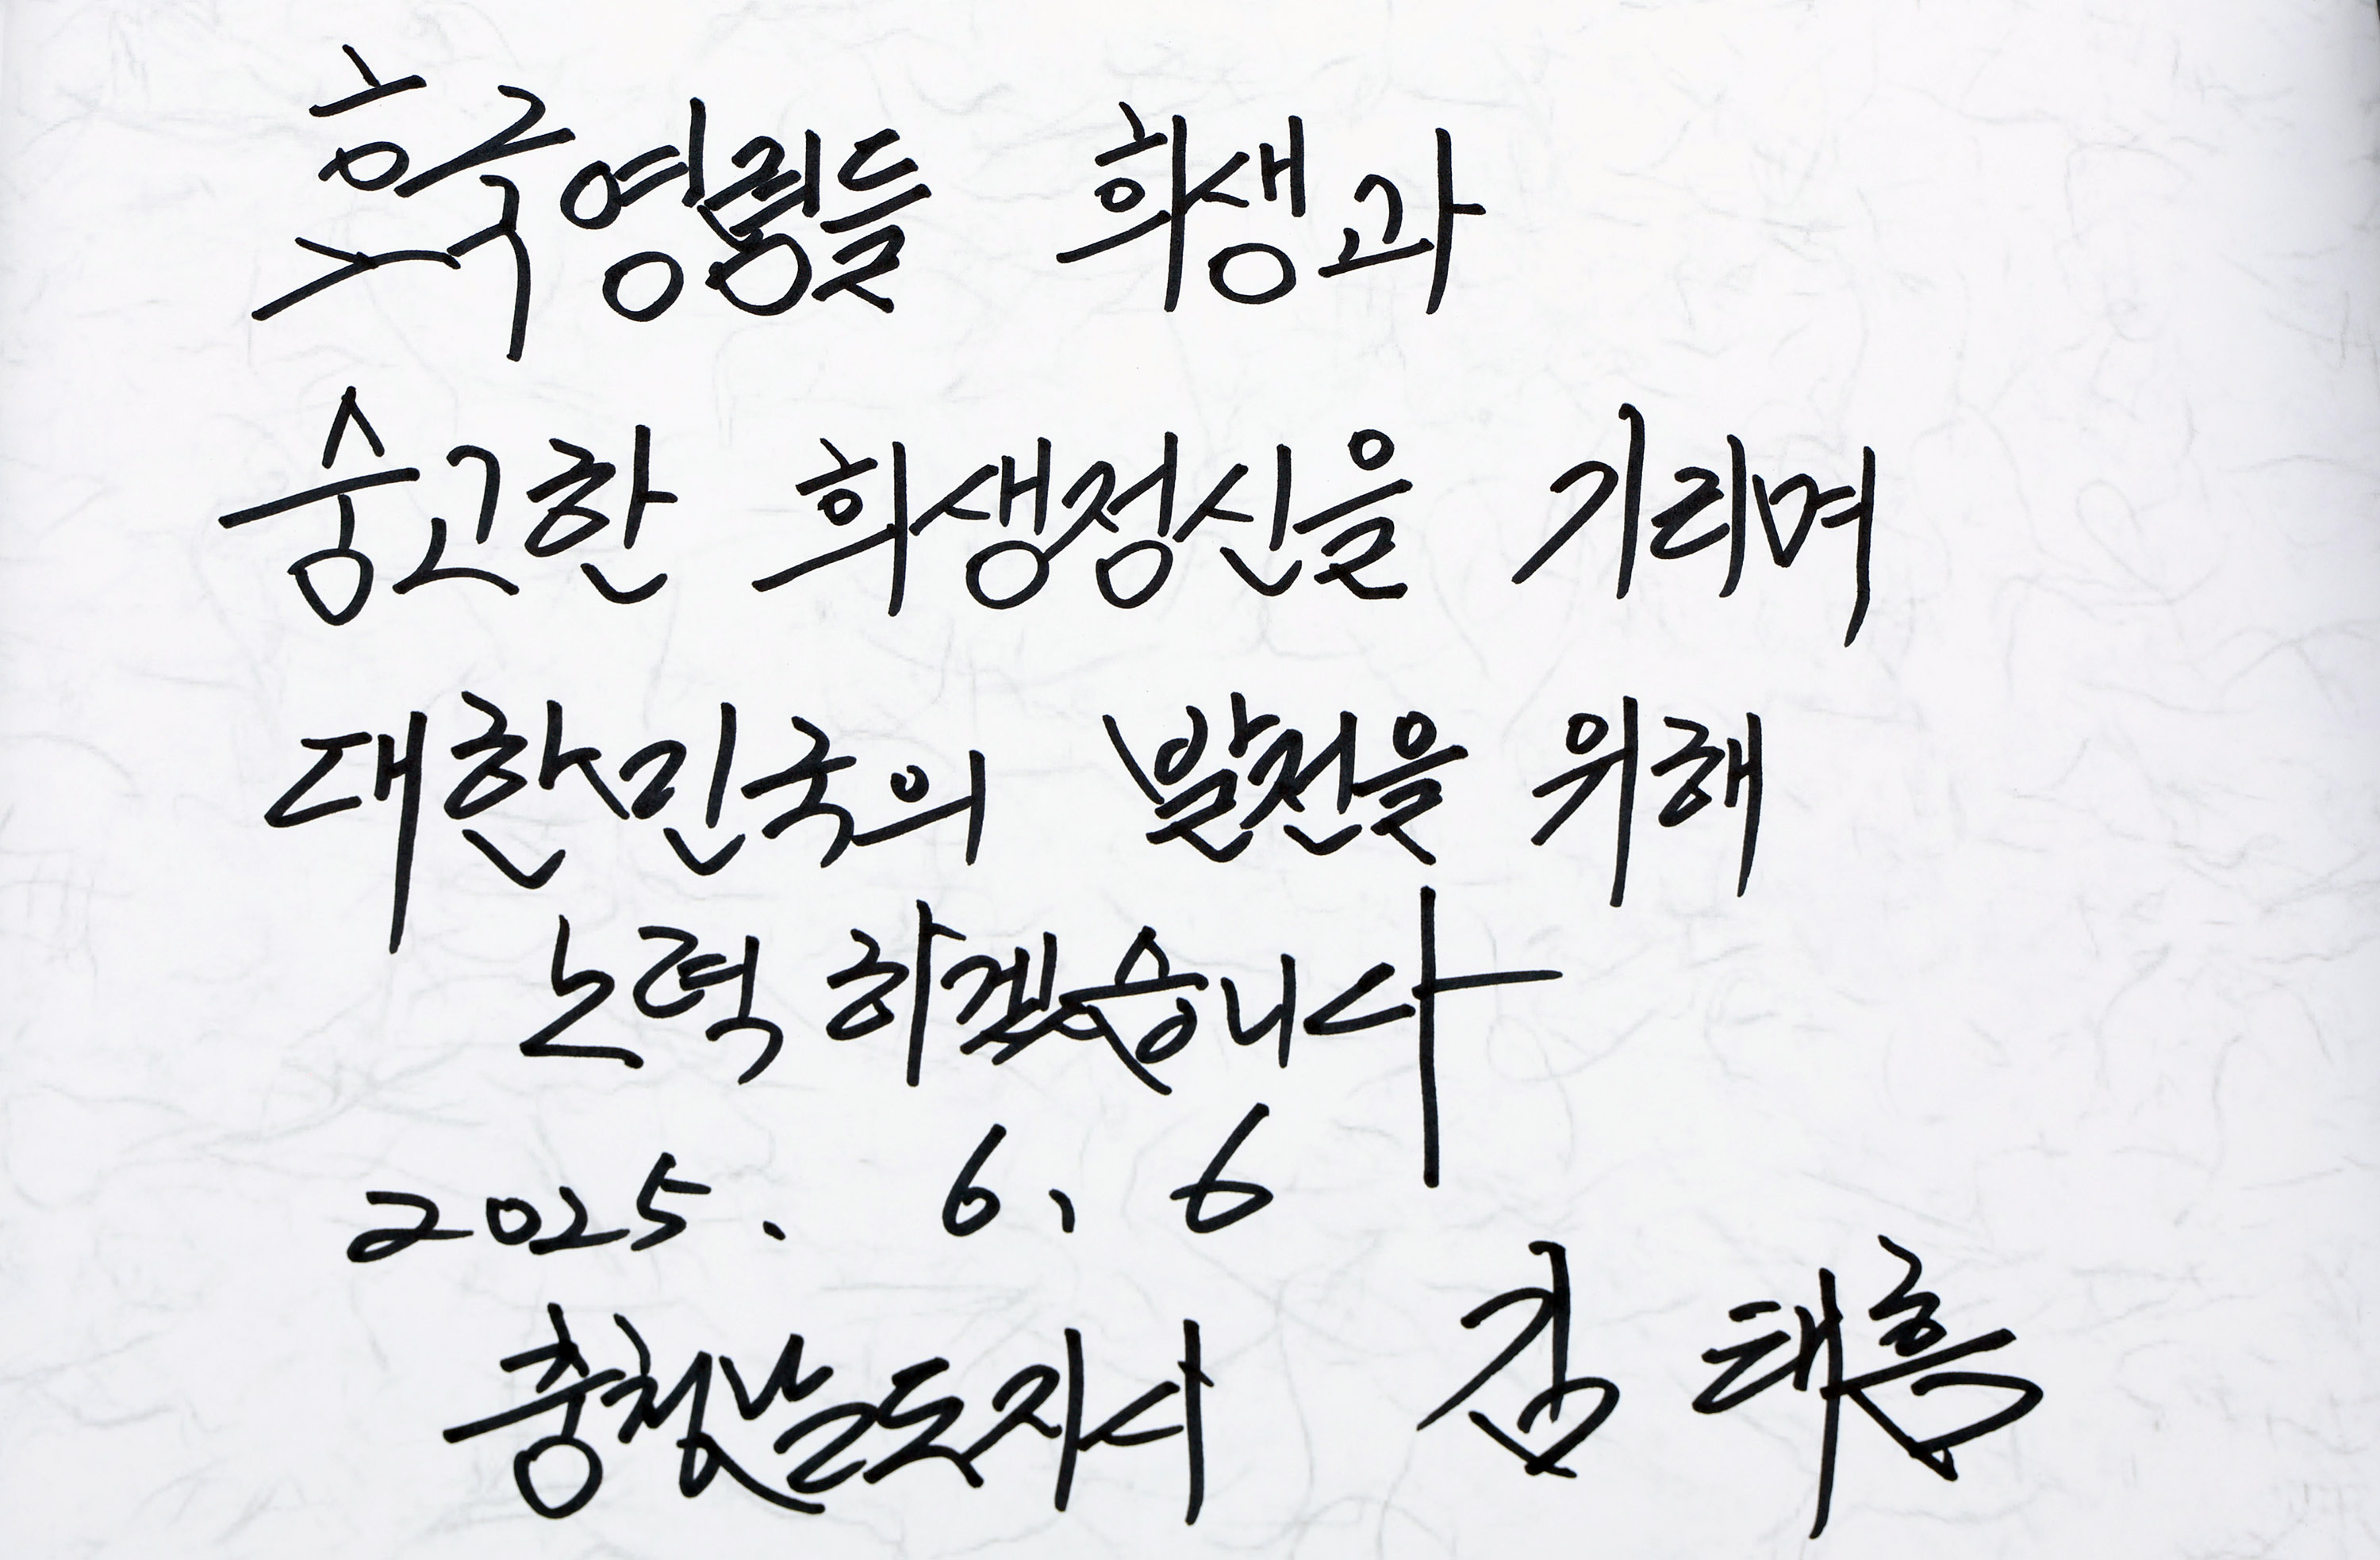 호국영령들 희생과
숭고한 희생정신을 기리며
대한민국의 발전을 위해
노력 하겠습니다
2025. 6. 6
충청남도지사 김태흠